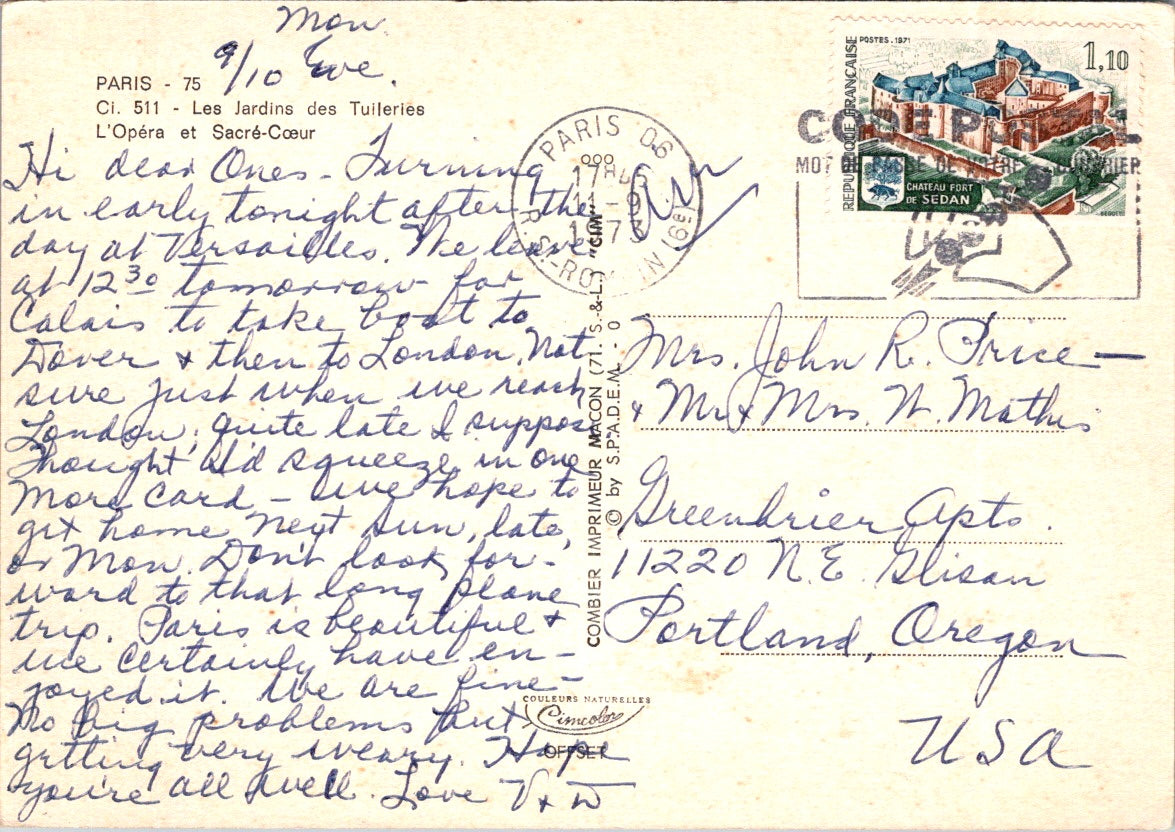 Mon.
9/10 Eve.
PARIS - 75
Ci. 511 - Les Jardins des Tuileries
L'Opéra et Sacré-Cœur
Hi dear Ones - Turning
in early tonight after the
day at Versailles. We leave
at 12 30 tomorrow for
Calais to take boat to
Dover & then to London. Not
sure just when we reach
London, quite late I suppose
Thought I'd squeeze in one
more card - We hope to
get home next Sun, late,
or Mon. Don't look for-
ward to that long plane
trip. Paris is beautiful &
we certainly have en-
joyed it. We are fine -
No big problems but
getting very weary. Hope
you're all well. Love V & W
COMBIER IMPRIMEUR MACON (71. S.-&-L.) "CIM"
© by S.P.A.D.E.M. - 0
COULEURS NATURELLES
Cimcolor
OFFSET
PARIS 06
1973
R. ST-ROMAIN
POSTES . 1971
1,10
REPUBLIQUE FRANCAISE
CHATEAU FORT
DE SEDAN
CODE POSTAL
MOT DE PASSE DE VOTRE COURRIER
Mrs. John R. Price -
& Mr & Mrs. W. Mathis
Greenbrier Apts.
11220 N.E. Glisan
Portland, Oregon
USA